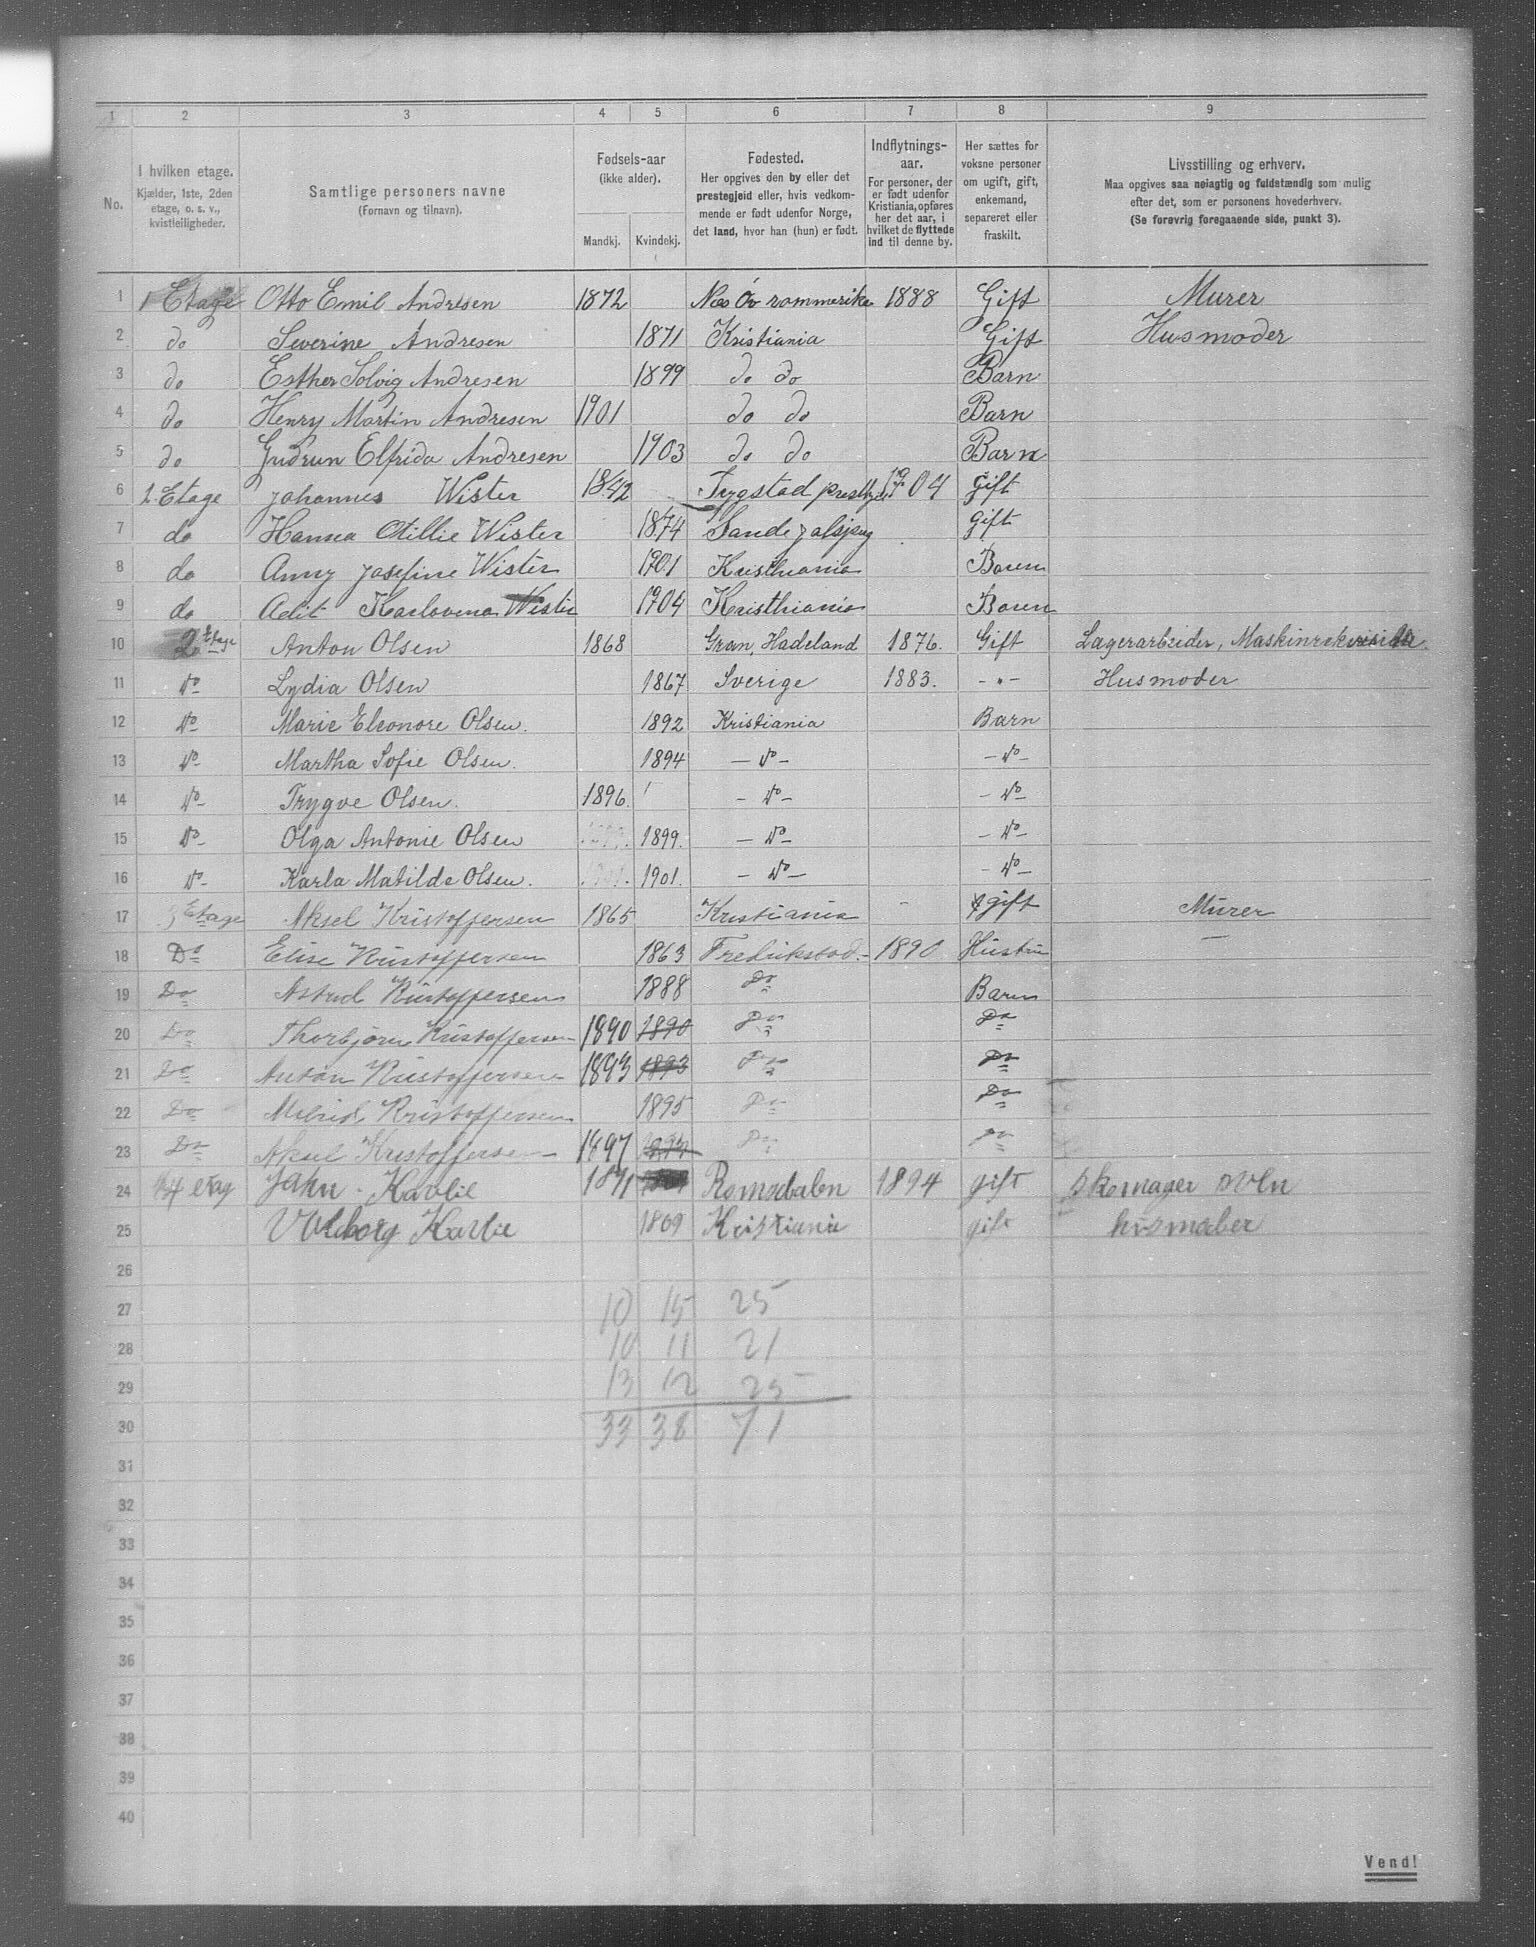 1 2 3 4 5 6 7 8 9
No.
I hvilken etage.
Kjælder, 1ste, 2den
etage, o. s. v.,
kvistleiligheder.
Samtlige personers navne
(Fornavn og tilnavn).
Fødsels-aar
(ikke alder).
Mandkj. Kvindekj.
Fødested.
Her opgives den by eller det
prestegjeld eller, hvis vedkom-
mende er født udenfor Norge,
det land, hvor han (hun) er født.
Indflytnings-
aar.
For personer, der
er født udenfor
Kristiania, opføres
her det aar, i
hvilket de flyttede
ind til denne by.
Her sættes for
voksne personer
om ugift, gift,
enkemand,
separeret eller
fraskilt.
Livsstilling og erhverv.
Maa opgives saa nøiagtig og fuldstændig som mulig
efter det, som er personens hovederhverv.
(Se forøvrig foregaaende side, punkt 3).
1 1 Etage Otto Emil Andresen 1872 Nes Øv rommerike 1888 Gift Murer
2 do Severine Andresen 1871 Kristiania Gift Husmoder
3 do Esther Solvig Andresen 1899 do do Barn
4 do Henry Martin Andresen 1901 do do Barn
5 do Gudrun Elfrida Andresen 1903 do do Barn
6 2 Etage Johannes Wister 1842 Trygstad 1904 gift
7 do Hanna Wister 1874 Sande gift
8 do Anny Josefine Wister 1901 Kristhiania Baren
9 do Adit Karlovena Wister 1904 Kristhiania Baren
10 2 Etage Anton Olsen 1868 Gran, Hadeland 1876. Gift Lagerarbeider,
11 do Lydia Olsen 1867 Sverige 1883. - " - Husmoder
12 do Marie Eleonore Olsen. 1892 Kristiania Barn
13 do Martha Sofie Olsen. 1894 - do - - do -
14 do Trygve Olsen. 1896. - do - - do -
15 do Olga Antonie Olsen 1899. - do - - do -
16 do Karla Matilde Olsen. 1901. - do - - do -
17 3 Etage Aksel Kristoffersen 1865 Kristiania gift Murer
18 Do Elise Kristoffersen 1863 Fredrikstad 1890 Hustru
19 Do Astrid Kristoffersen 1888 Do Baren
20 Do Thorbjørn Kristoffersen 1890 1890 Do Do
21 Do Anton Kristoffersen 1893 1893 Do Do
22 Do Kristoffersen 1895 Do Do
23 Do Aksel Kristoffersen 1897 Do Do
24 4 etag John Kavlie 1871 Romsdalen 1894 gift skomager svln
25 Valborg Kavlie 1869 Kristiania gift husmoder
26
27 10 15 25
28 10 11 21
29 13 12 25
30 33 38 71
31
32
33
34
35
36
37
38
39
40
Vend!